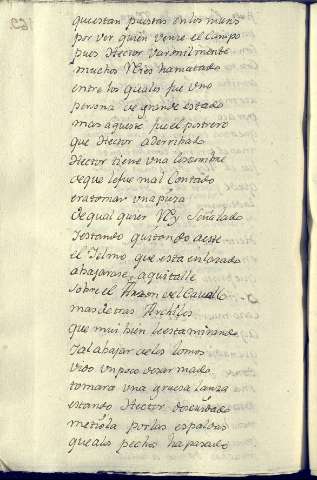 que estan puestas en los muros
por ver quien vence el Campo
pues Hector varonilmente
muchos Reies ha matado
entre los quales fue uno
persona de grande estado
mas aqueste fue el postrero
que Hector a derribado
Hector tiene una Costumbre
de que le fue mal Contado
era tomar una pieza
de qual quier Rey Señalado
Y estando quitando a este
el Yelmo que esta enlazado
abajarase a quitalle
Sobre el Arzon del Cavallo
mas detras Archiles
que mui bien le esta mirando
Y al abajar de los lomos
vido un poco desarmado
tomara una gruesa lanza
estando Hector descuidado
metiola por las espaldas
que a los pechos ha pasado